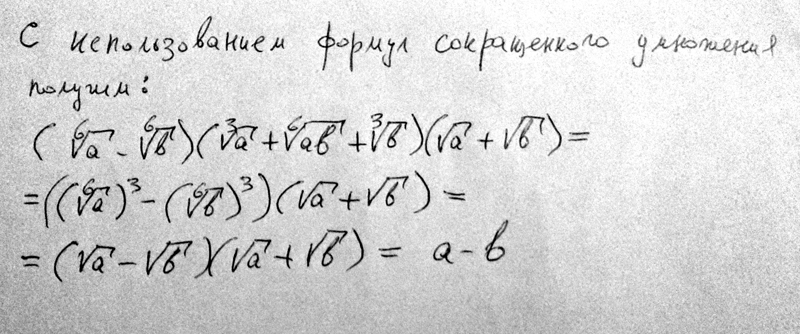 С использованием формул сокращенного умножения
получим:
(⁶√a - ⁶√b)(³√a + ⁶√ab + ³√b)(√a + √b) =
= ((⁶√a)³ - (⁶√b)³)(√a + √b) =
= (√a - √b)(√a + √b) = a - b